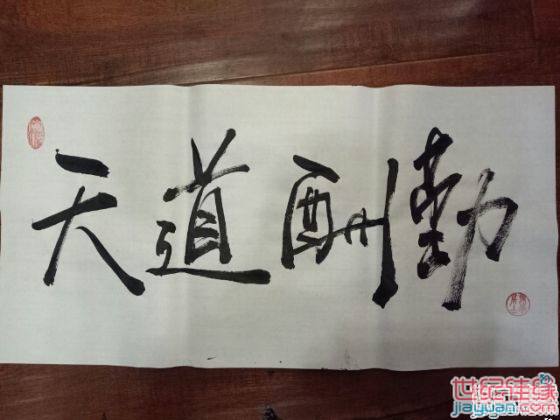 天道酬勤
世纪佳缘
jiayuan.com